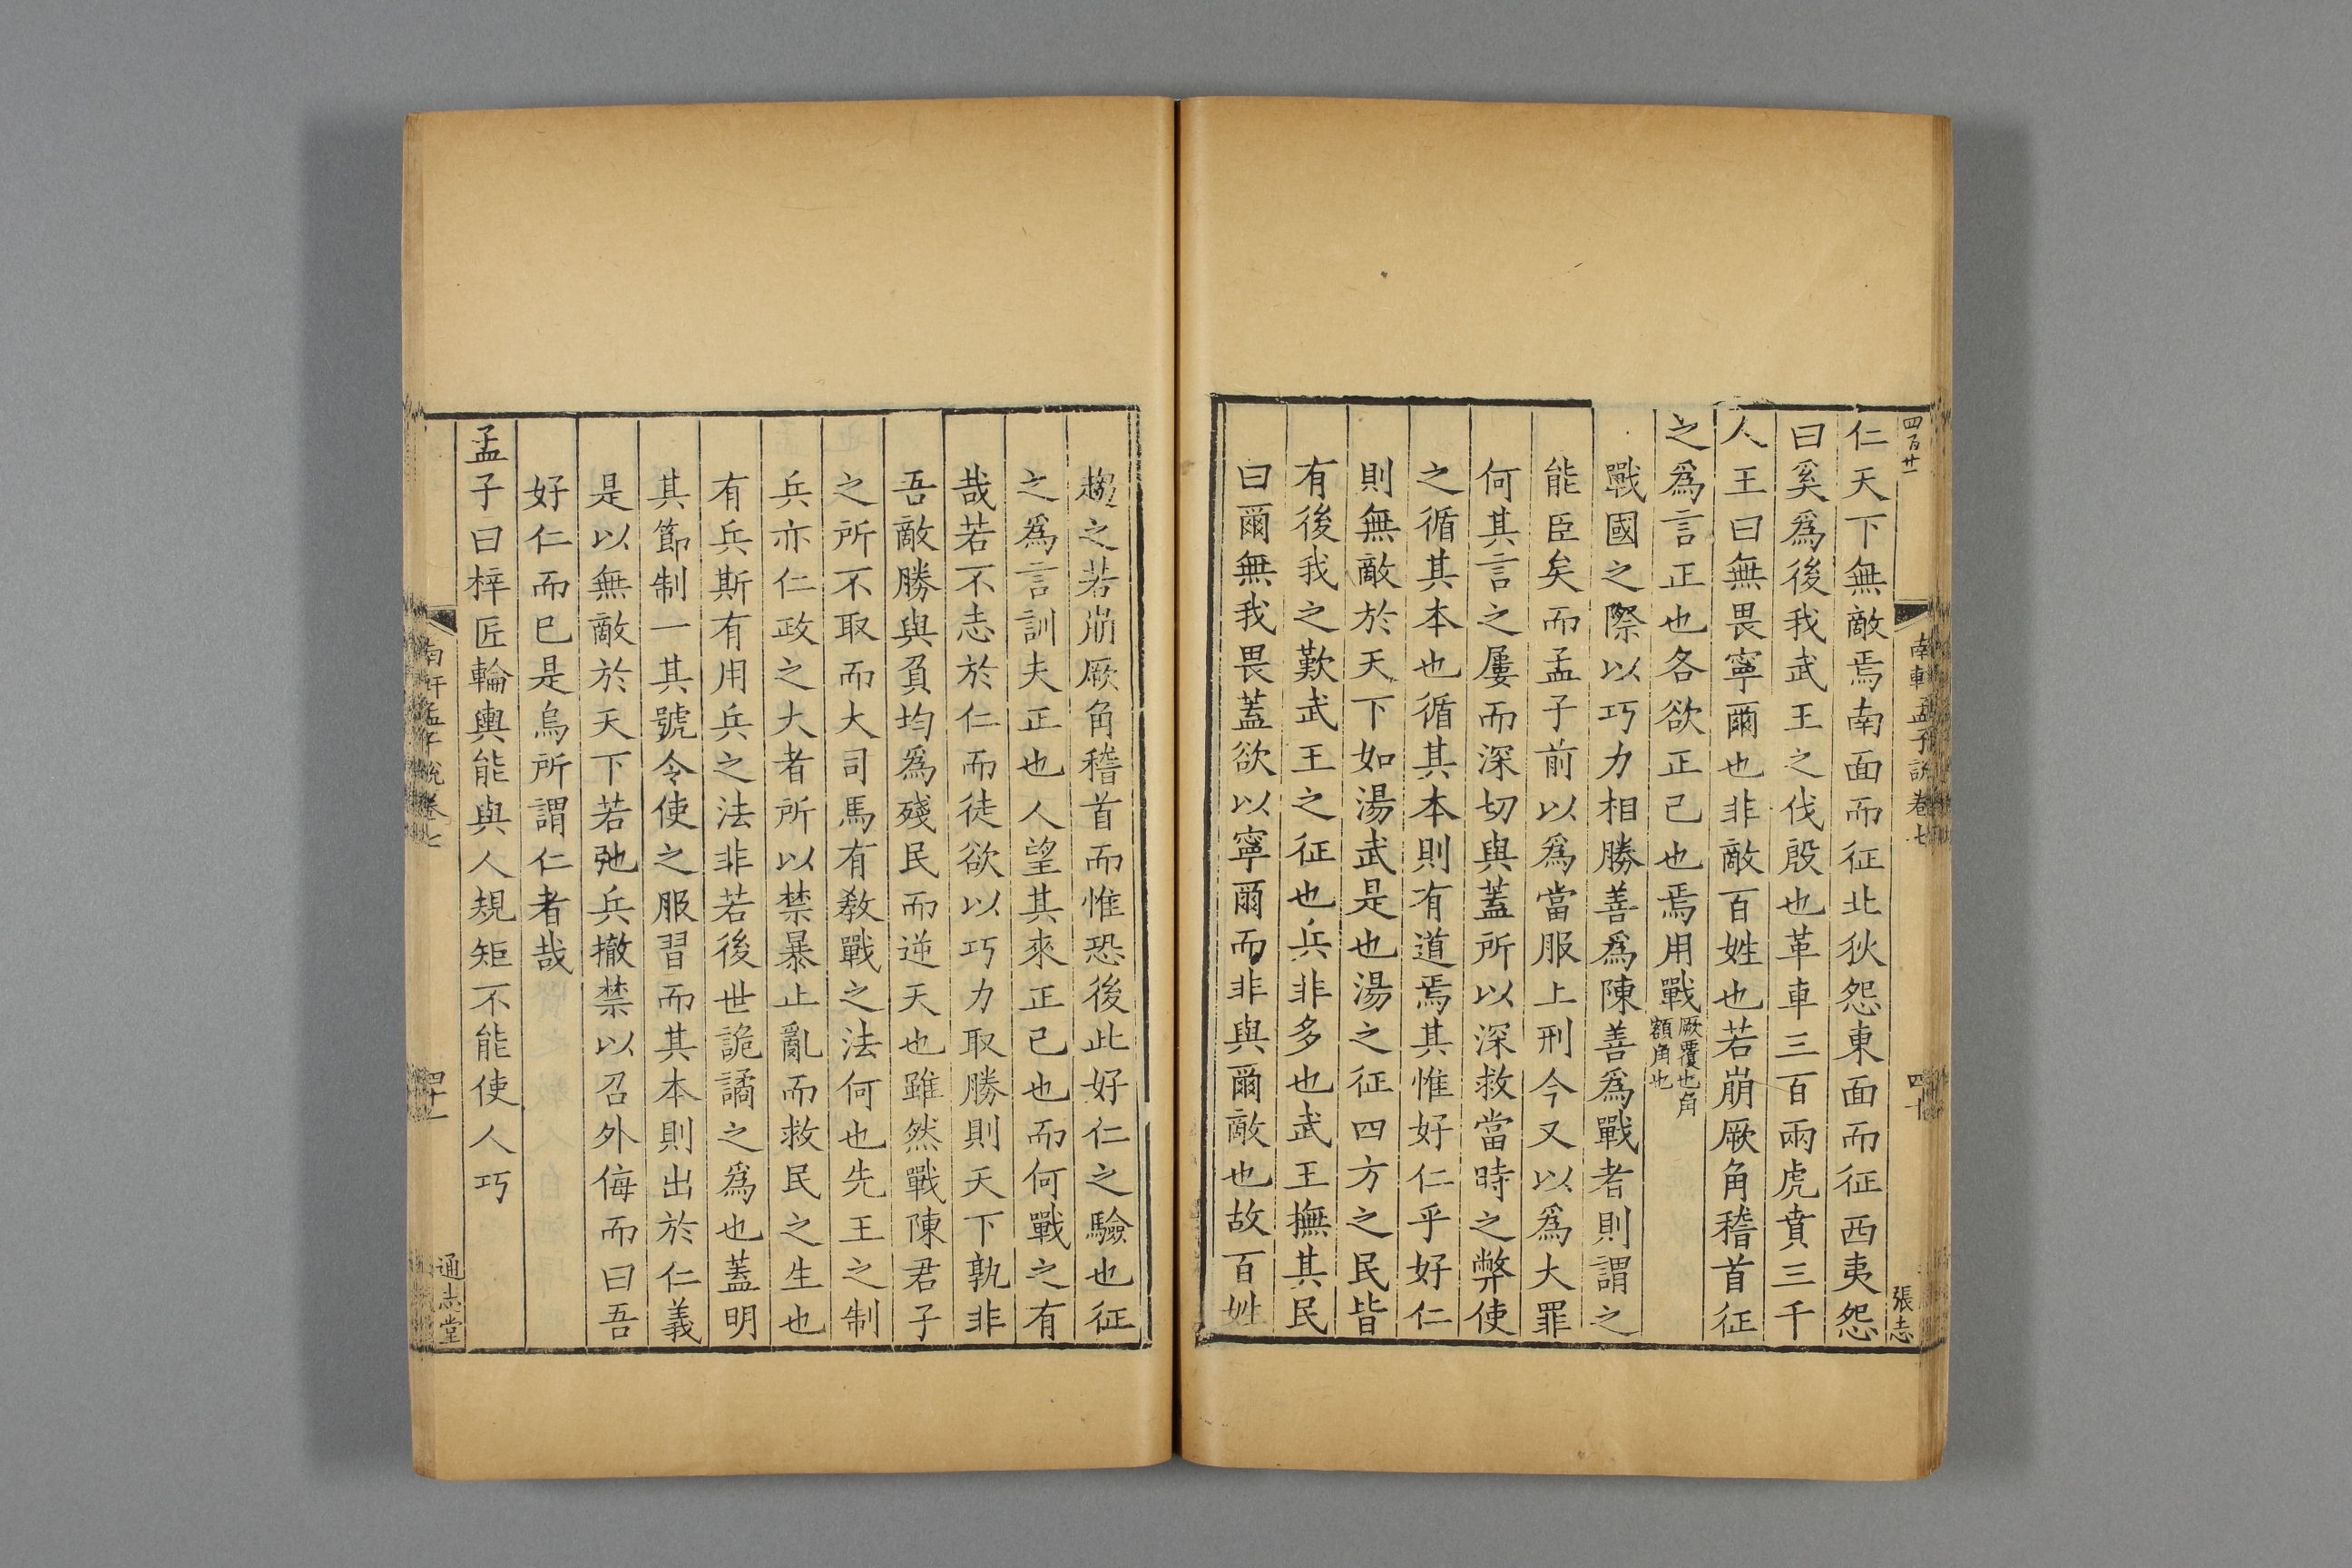 四百廿一
南軒孟子說卷七
四十
張志
仁天下無敵焉南面而征北狄怨東面而征西夷怨
曰奚爲後我武王之伐殷也革車三百兩虎賁三千
人王曰無畏寧爾也非敵百姓也若崩厥角稽首征
之爲言正也各欲正己也焉用戰厥覆也角額角也
戰國之際以巧力相勝善爲陳善爲戰者則謂之
能臣矣而孟子前以爲當服上刑今又以爲大罪
何其言之屢而深切與蓋所以深救當時之弊使
之循其本也循其本則有道焉其惟好仁乎好仁
則無敵於天下如湯武是也湯之征四方之民皆
有後我之歎武王之征也兵非多也武王撫其民
曰爾無我畏蓋欲以寧爾而非與爾敵也故百姓
趨之若崩厥角稽首而惟恐後此好仁之驗也征
之爲言訓夫正也人望其來正己也而何戰之有
哉若不志於仁而徒欲以巧力取勝則天下孰非
吾敵勝與負均爲殘民而逆天也雖然戰陳君子
之所不取而大司馬有教戰之法何也先王之制
兵亦仁政之大者所以禁暴止亂而救民之生也
有兵斯有用兵之法非若後世詭譎之爲也蓋明
其節制一其號令使之服習而其本則出於仁義
是以無敵於天下若弛兵撤禁以召外侮而曰吾
好仁而已是烏所謂仁者哉
孟子曰梓匠輪輿能與人規矩不能使人巧
南軒孟子說卷七
四十一
通志堂